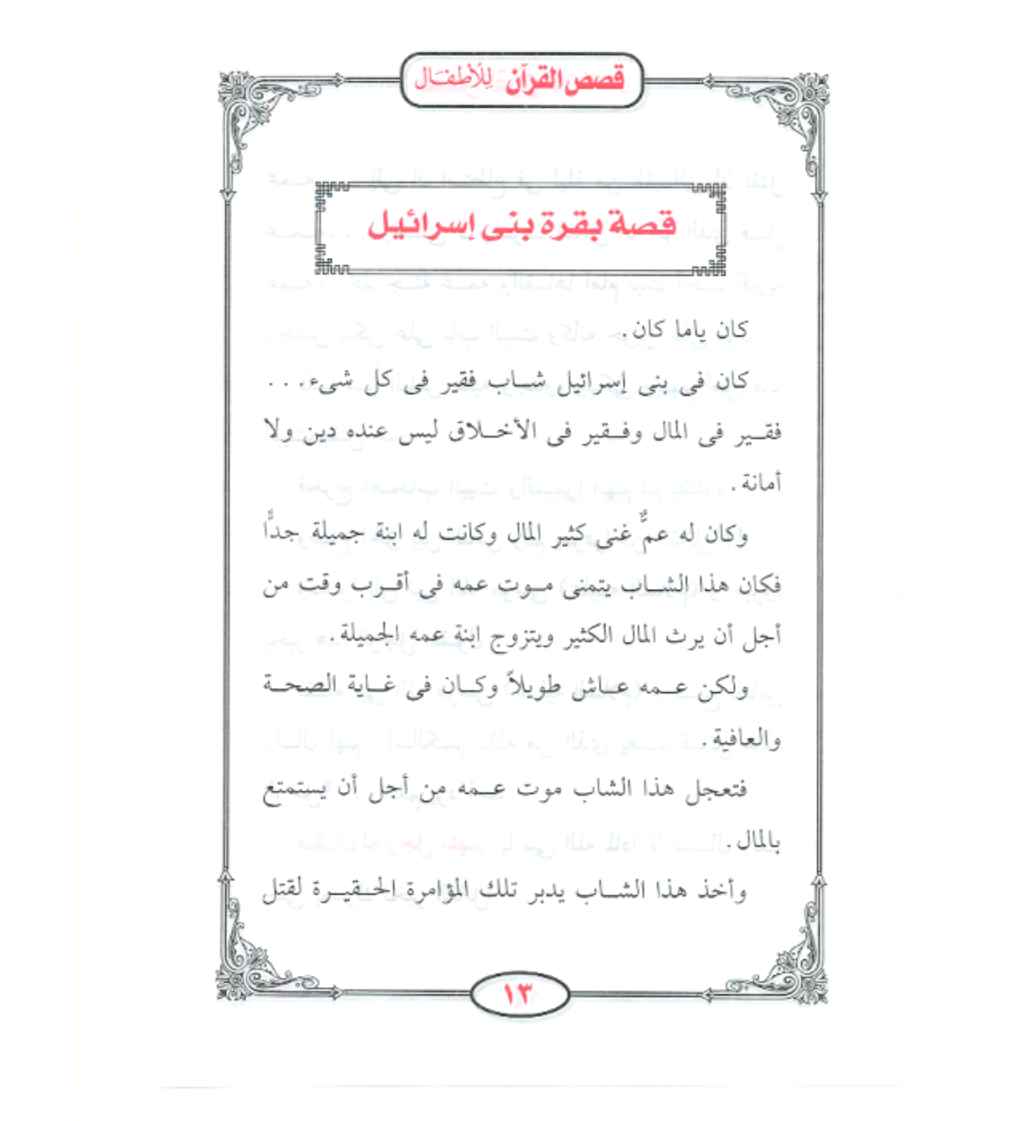 قصص القرآن للأطفال
قصة بقرة بنى إسرائيل
كان ياما كان.
كان فى بنى إسرائيل شاب فقير فى كل شىء...
فقير فى المال وفقير فى الأخلاق ليس عنده دين ولا
أمانة.
وكان له عمٌّ غنى كثير المال وكانت له ابنة جميلة جدًّا
فكان هذا الشاب يتمنى موت عمه فى أقرب وقت من
أجل أن يرث المال الكثير ويتزوج ابنة عمه الجميلة.
ولكن عمه عاش طويلاً وكان فى غاية الصحة
والعافية.
فتعجل هذا الشاب موت عمه من أجل أن يستمتع
بالمال.
وأخذ هذا الشاب يدبر تلك المؤامرة الحقيرة لقتل
١٣